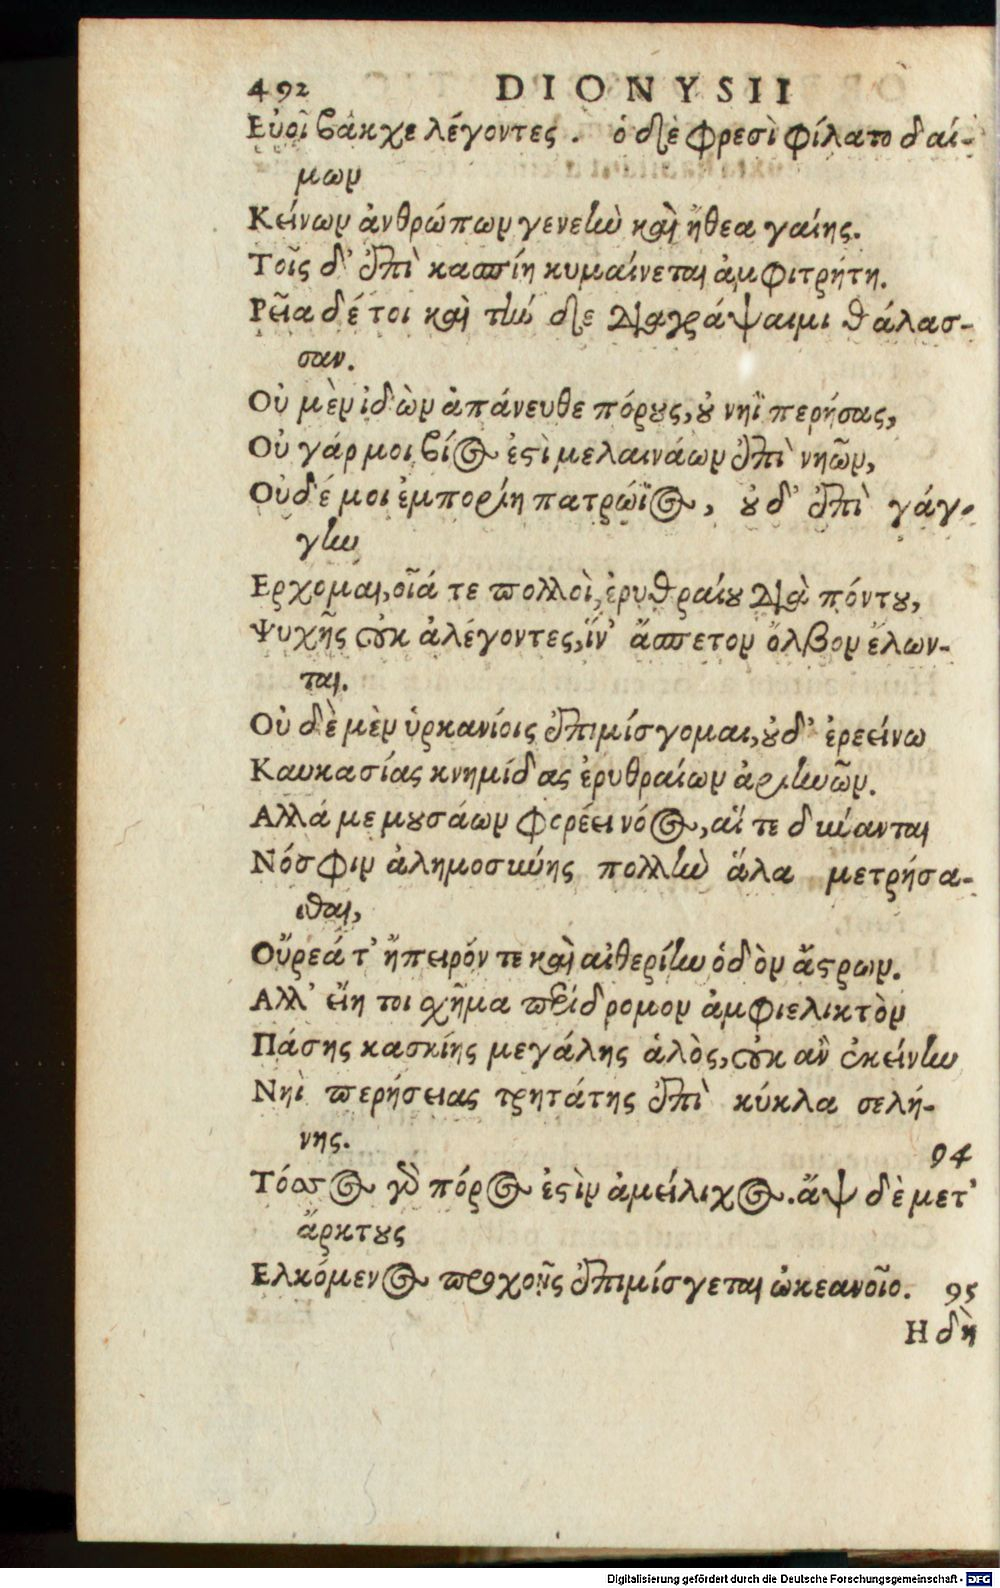 492 DIONYSII
Εὐοῖ βάκχε λέγοντες . ὁ δὲ φρεσὶ φίλατο δαί-
μων
Κείνων ἀνθρώπων γενεὴν καὶ ἤθεα γαίης.
Τοῖς δ' ἐπὶ κασπίη κυμαίνεται ἀμφιτρήτη.
Ρεῖα δέ τοι καὶ τήν δε διαγράψαιμι θάλασ-
σαν.
Οὐ μὲν ἰδὼν ἀπάνευθε πόρους, οὐ νηῒ περήσας,
Οὐ γάρ μοι βίος ἐστὶ μελαινάων ἐπὶ νηῶν,
Οὐδέ μοι ἐμπορίη πατρώϊος, οὐδ' ἐπὶ γάγ-
γην
Ερχομαι, οἷά τε πολλοὶ, ἐρυθραίου διὰ πόντου,
Ψυχῆς οὐκ ἀλέγοντες, ἵν' ἄσπετον ὄλβον ἕλων-
ται.
Οὐ δὲ μὲν ὑρκανίοις ἐπιμίσγομαι, οὐδ' ἐρεείνω
Καυκασίας κνημίδας ἐρυθραίων ἀριηνῶν.
Αλλά με μουσάων φορέει νόος, αἵ τε δύνανται
Νόσφιν ἀλημοσύνης πολλὴν ἅλα μετρήσα-
σθαι,
Οὔρεά τ' ἤπειρόν τε καὶ αἰθερίην ὁδὸν ἄστρων.
Αλλ' εἴη τοι σχῆμα περίδρομον ἀμφιελικτὸν
Πάσης κασπίης μεγάλης ἁλὸς, οὐκ ἂν ἐκείνην
Νηῒ περήσειας τρητάτης ἐπὶ κύκλα σελή-
νης.
94
Τόσσος γὸ πόρος ἐστὶν ἀμείλιχος. ἂψ δὲ μετ'
ἄρκτους
Ελκόμενος προχοῇς ἐπιμίσγεται ὠκεανοῖο. 95
Η δὴ
Digitalisierung gefördert durch die Deutsche Forschungsgemeinschaft - DFG